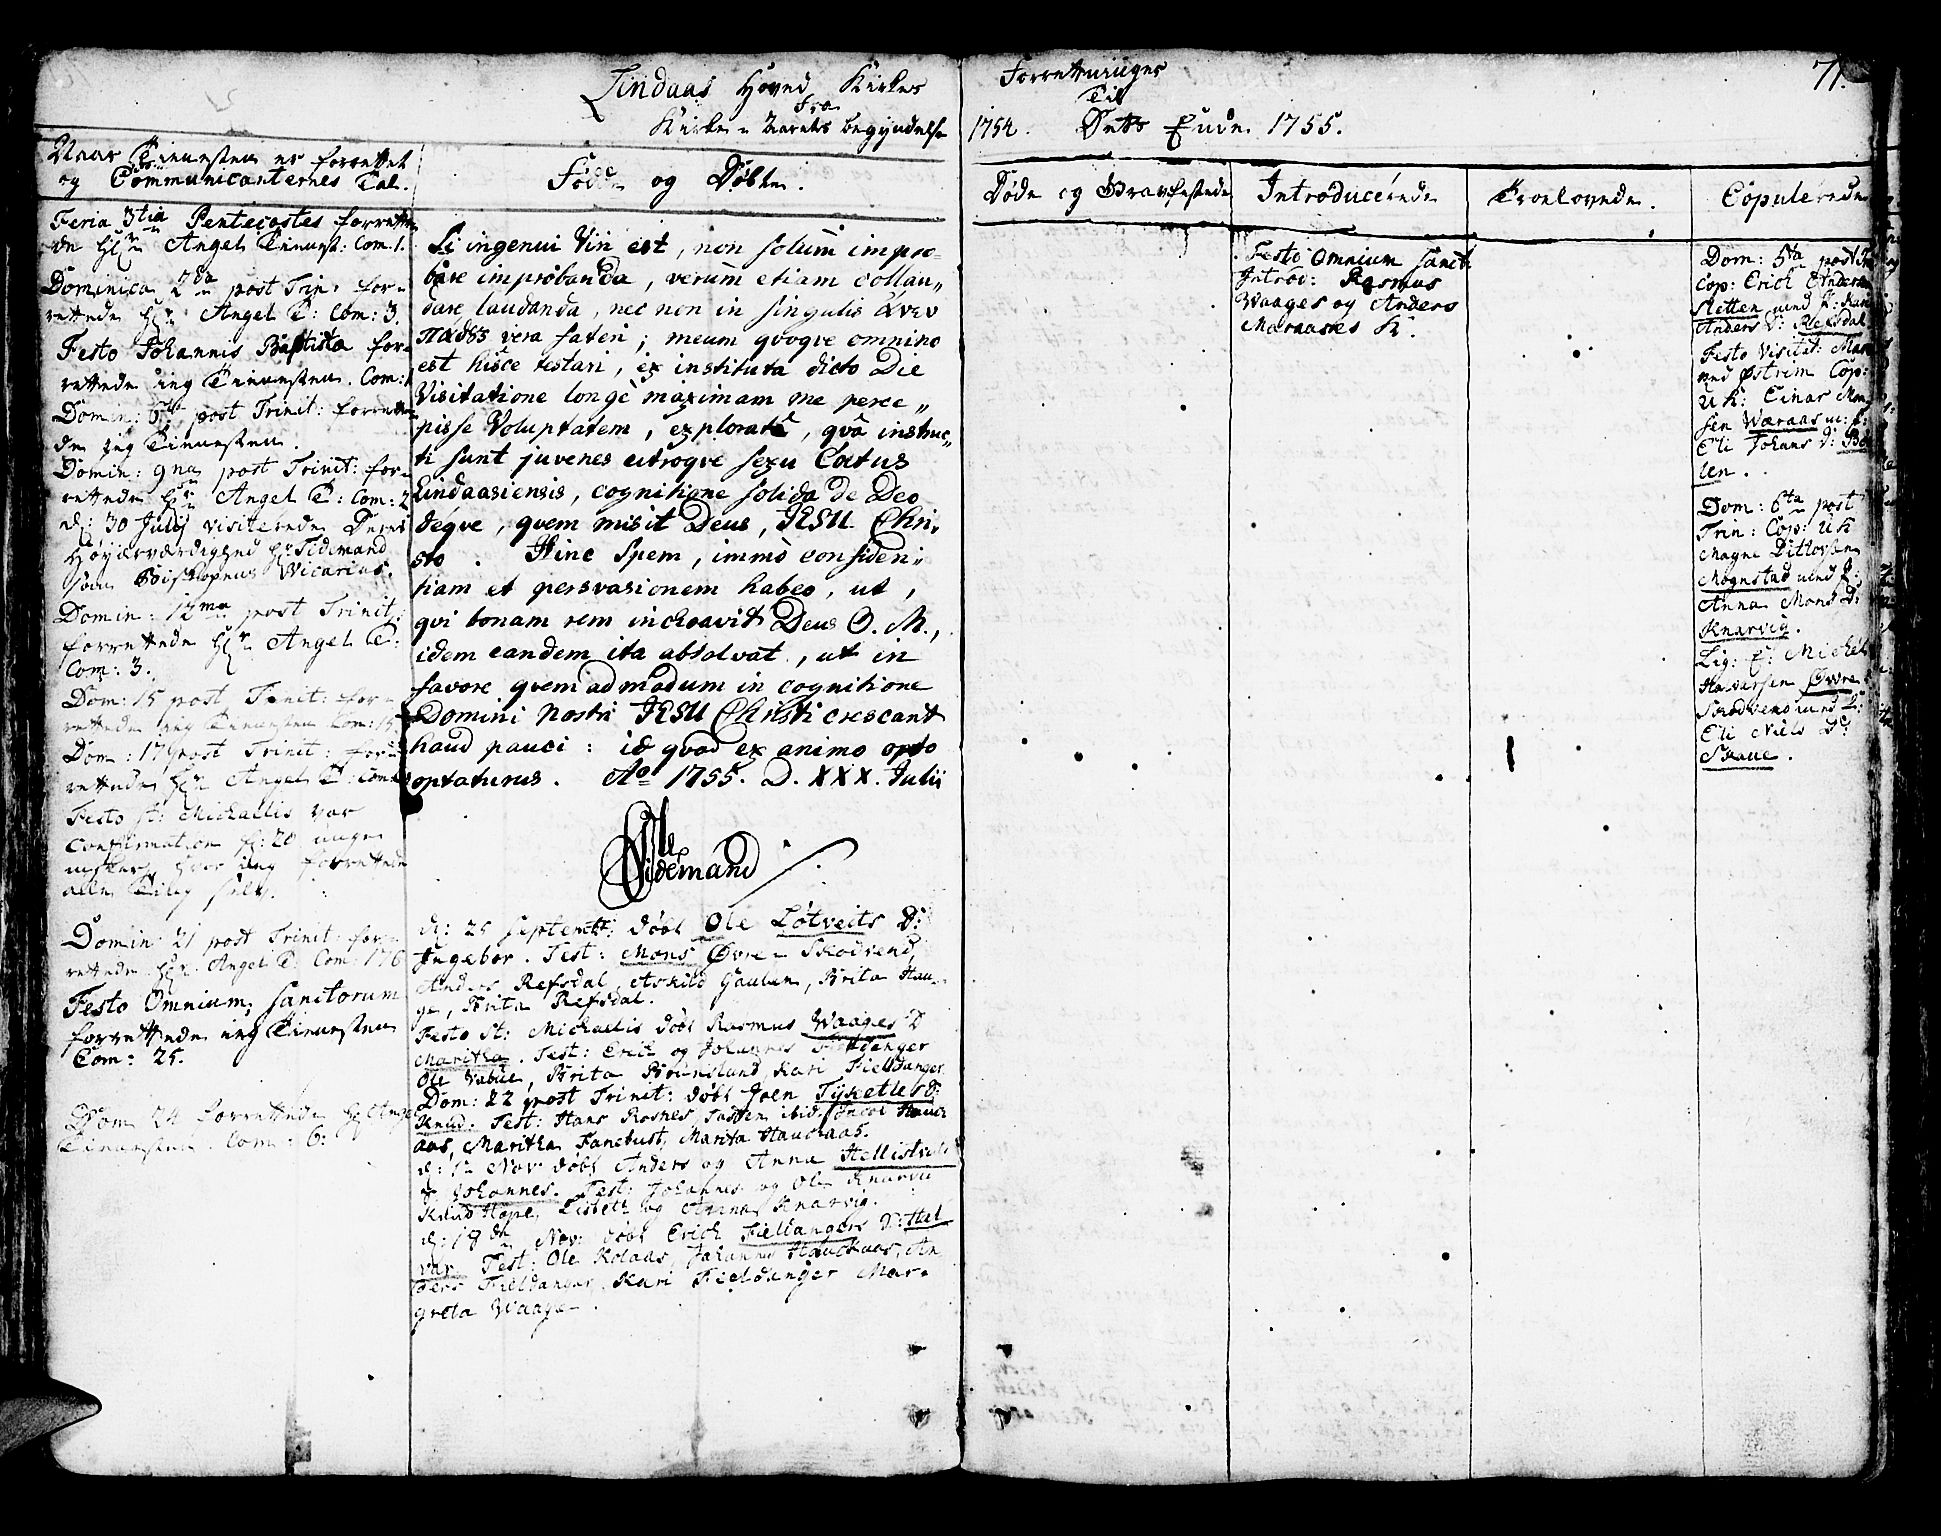 Lindaas Hoved Kirkes Forretninger
fra Til
Kirke-Aarets begyndelse 1754. Dets Ende 1755.
71.
Naar Tienesten er forrettet
og Communicanternes Tal.
Feria 3tia Pentecostes forrette
de Hr Angel Tienest: Com. 1.
Dominica 2da post Trin: for-
rettede Hr Angel T: Com: 3.
Festo Johannis Baptistæ for-
rettede ieg Tienesten. Com:
Domin: 6te post Trinit: forrette
de ieg Tienesten.
Domin: 9na post Trinit: for-
rettede Hr Angel T: Com: 2
d: 30 Julij visiterede Deres
Høyærværdighed Hr Tidemand
som Biskopens Vicarius.
Domin: 12ma post Trinit:
forrettede Hr Angel T:
Com: 3.
Dom: 15 post Trinit: for-
rettede ieg Tienesten Com: 15
Dom: 17 post Trinit: for-
rettede Hr Angel T: Com:
Festo St: Michaelis var
Confirmation f: 20 unge
msker, hvor ieg forrettede
alle Ting selv.
Domin 21 post Trinit: for-
rettede Hr Angel T. Com: 176
Festo Omnium Sanctorum
forrettede ieg Tienesten
Com: 25.
Dom 24 forrettede Hr Angel
Tienesten. Com: 6:
Fødde og Døbte.
Si ingenui Viri est, non solum impro-
bare improbanda, verum etiam collau-
dare laudanda, nec non in singulis ἄνευ
παθος vera fateri; meum qvoqve omnino
est hisce testari, ex instituta dicto Die
Visitatione longè maximam me perce-
pisse Voluptatem, exploratô, qvâ instruc-
ti sunt juvenes utroqve sexu Cætus
Lindaasiensis, cognitione solida de Deo
deqve, qvem misit Deus, JESU Chri-
sto. Hinc Spem, immò confiden-
tiam et persvasionem habeo, ut,
qvi bonam rem inchoavit Deus O. M.,
idem eandem ita absolvat, ut in
favore qvemadmodum in cognitione
Domini Nostri JESU Christi crescant
haud pauci: id qvod ex animo opto
optaturus. Ao 1755. D. XXX. Julii
Ole
Tidemand
d: 25 Septembr: døbt Ole Lotveits D:
Ingebor. Test: Mons Øvre-Skodvend,
Anders Refsdal, Askild Gaulen, Brita Hau-
ge, Brita Refsdal.
Festo St: Michaelis døbt Rasmus Waages D
Maritha. Test: Erich og Johannes Fieldanger
Ole Vabue, Brita Brunsland, Kari Fieldanger.
Dom: 22 post Trinit: døbt Joen Tysketlers D:
Knud. Test: Hans Rosnes, Tosten ibid. Jacob Hauck
aas, Maritha Fanebust, Marita Hauckaas.
d: 1te Nov: døbt Anders og Anna Hellistveits
D Johannes. Test: Johannes og Ole Knarvii
Knud Hope, Lisbeth og Anna Knarvig.
d: 18de Nov: døbt Erich Fieldangers D: Hal
var. Test: Ole Kolaas, Johannes Hauckaas, An
ders Fieldanger, Kari Fieldanger Mar-
greta Waage.
Døde og Gravfestede
Introducerede
Festo Omnium Sanct:
Introd: Rasmus
Waages og Anders
Maraases K:
Troelovede.
Copulerede
Dom: 5ta post Tr
Cop: Erich Anders
Sletten med P: Kari
Anders D: Refsdal
Festo Visitat: Mar
ved Østrem Cop:
U K: Einar Mon
sen Wæraas m: P:
Eli Johans D: Bø
len.
Dom: 6ta post
Trin: Cop: U K
Magne Ditlevsen
Mognstad med P:
Anna Mons D:
Knarvig.
Lig: E: Michel
Halvorsen Øvre
Skodvend med P:
Eli Niels D:
Skaue.